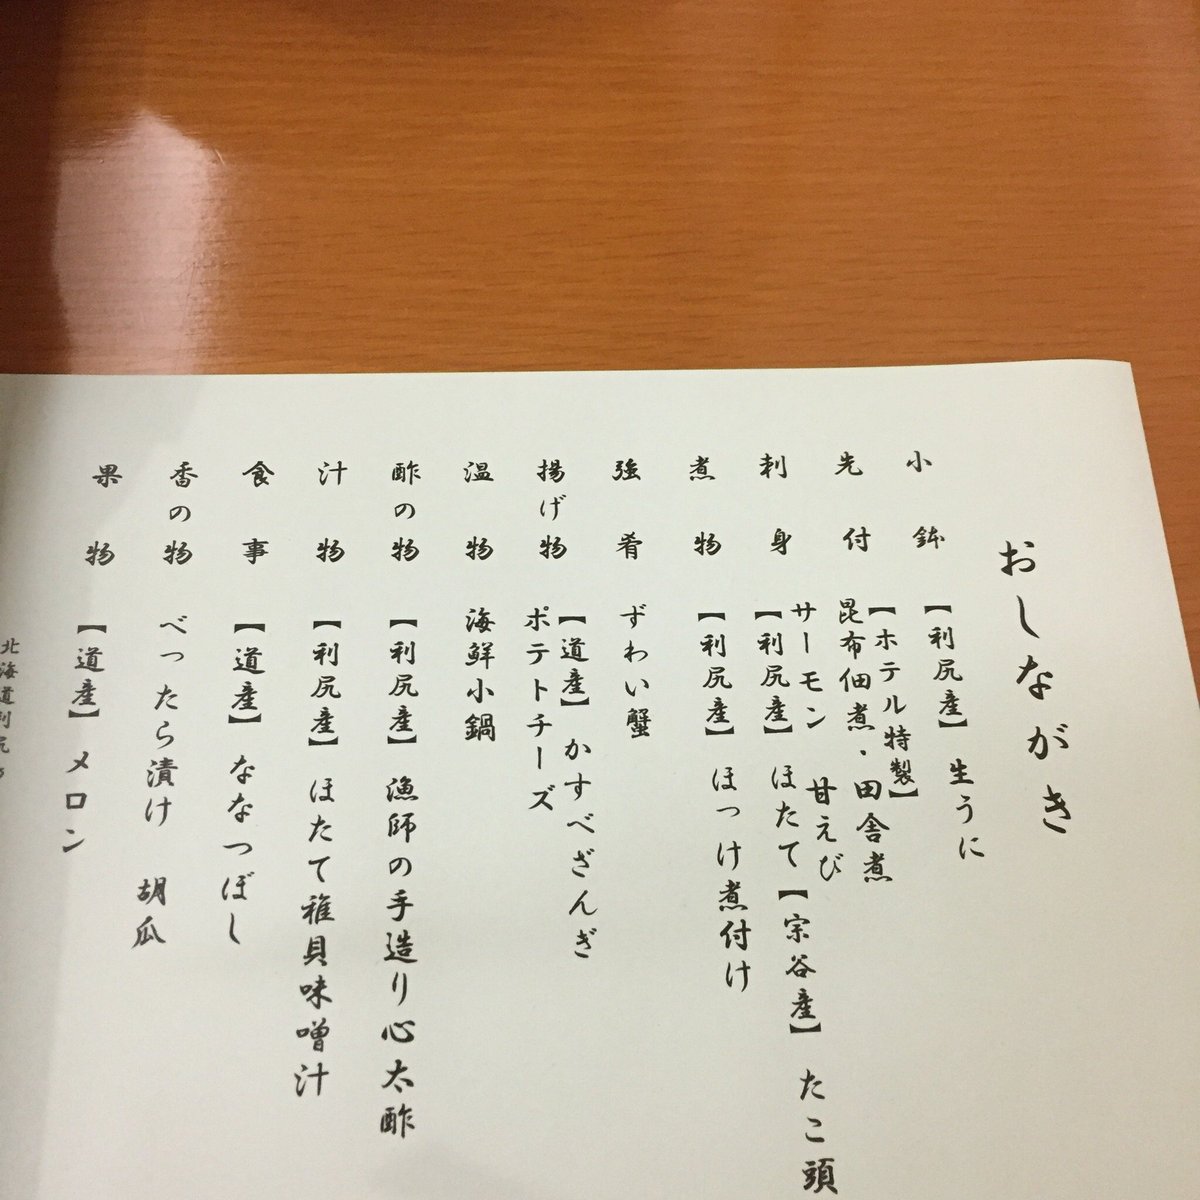 おしながき
小鉢 【利尻産】 生うに
先付 【ホテル特製】
昆布佃煮・田舎煮
刺身 サーモン 甘えび
【利尻産】 ほたて 【宗谷産】 たこ頭
煮物 【利尻産】 ほっけ煮付け
強肴 ずわい蟹
揚げ物 【道産】 かすべざんぎ
ポテトチーズ
温物 海鮮小鍋
酢の物 【利尻産】 漁師の手造り心太酢
汁物 【利尻産】 ほたて稚貝味噌汁
食事 【道産】 ななつぼし
香の物 べったら漬け 胡瓜
果物 【道産】 メロン
北海道利尻